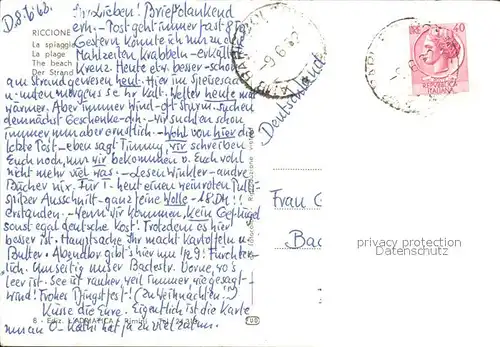 D.8.6.62.
RICCIONE
La spiaggia
La plage
The beach
Der Strand
Ihr Lieben! Brief dankend
ern. - Post geht immer fast 8 Tg.
Gestern konnte ich nur zu die
Mahlzeiten krabbeln - erkält.
Kreuz. Heute etw. besser - schon
am Strand gewesen heut. Hier im Speisesaal
u - unten morgens sehr kalt. Wetter heute mal
wärmer. Aber immer Wind - oft Sturm. Suchen
demnächst Geschenke - wir suchten schon
immer nun aber ernstlich. - Wohl von hier die
letzte Post - eben sagt Timmy, wir schreiben
Euch noch, nur wir bekommen v. Euch wohl
nicht mehr viel was. - Lesen Winkler - andre
Bücher nix. Für T - heut einen weinroten Pulli -
spitzer Ausschnitt - ganz feine Wolle - 18.DM!!
erstanden. - Wenn wir kommen, kein Geflügel
sonst egal deutsche Kost! Trotzdem es hier
besser ist. Hauptsache Ihr macht Kartoffeln u.
Butter. Abendbr gibt's hier nur ½9! Fürchter-
lich. Umseitig unser Badestr. Vorne, wo's
leer ist. See ist rauher, weil immer, wie gesagt -
Wind! Frohes Pfingstfest! (Zu Weihnachten..)
Küsse die Eure. Eigentlich ist die Karte
nur an O - Käthi hat ja zu viel
Deutschland
Frau
Bad
9.6.62
40
REPUBBLICA
ITALIANA
6 - Ediz. L'ADRIATICA - Rimini
Riproduzione vietata
copyright-protected
Ansichtskarten-Center